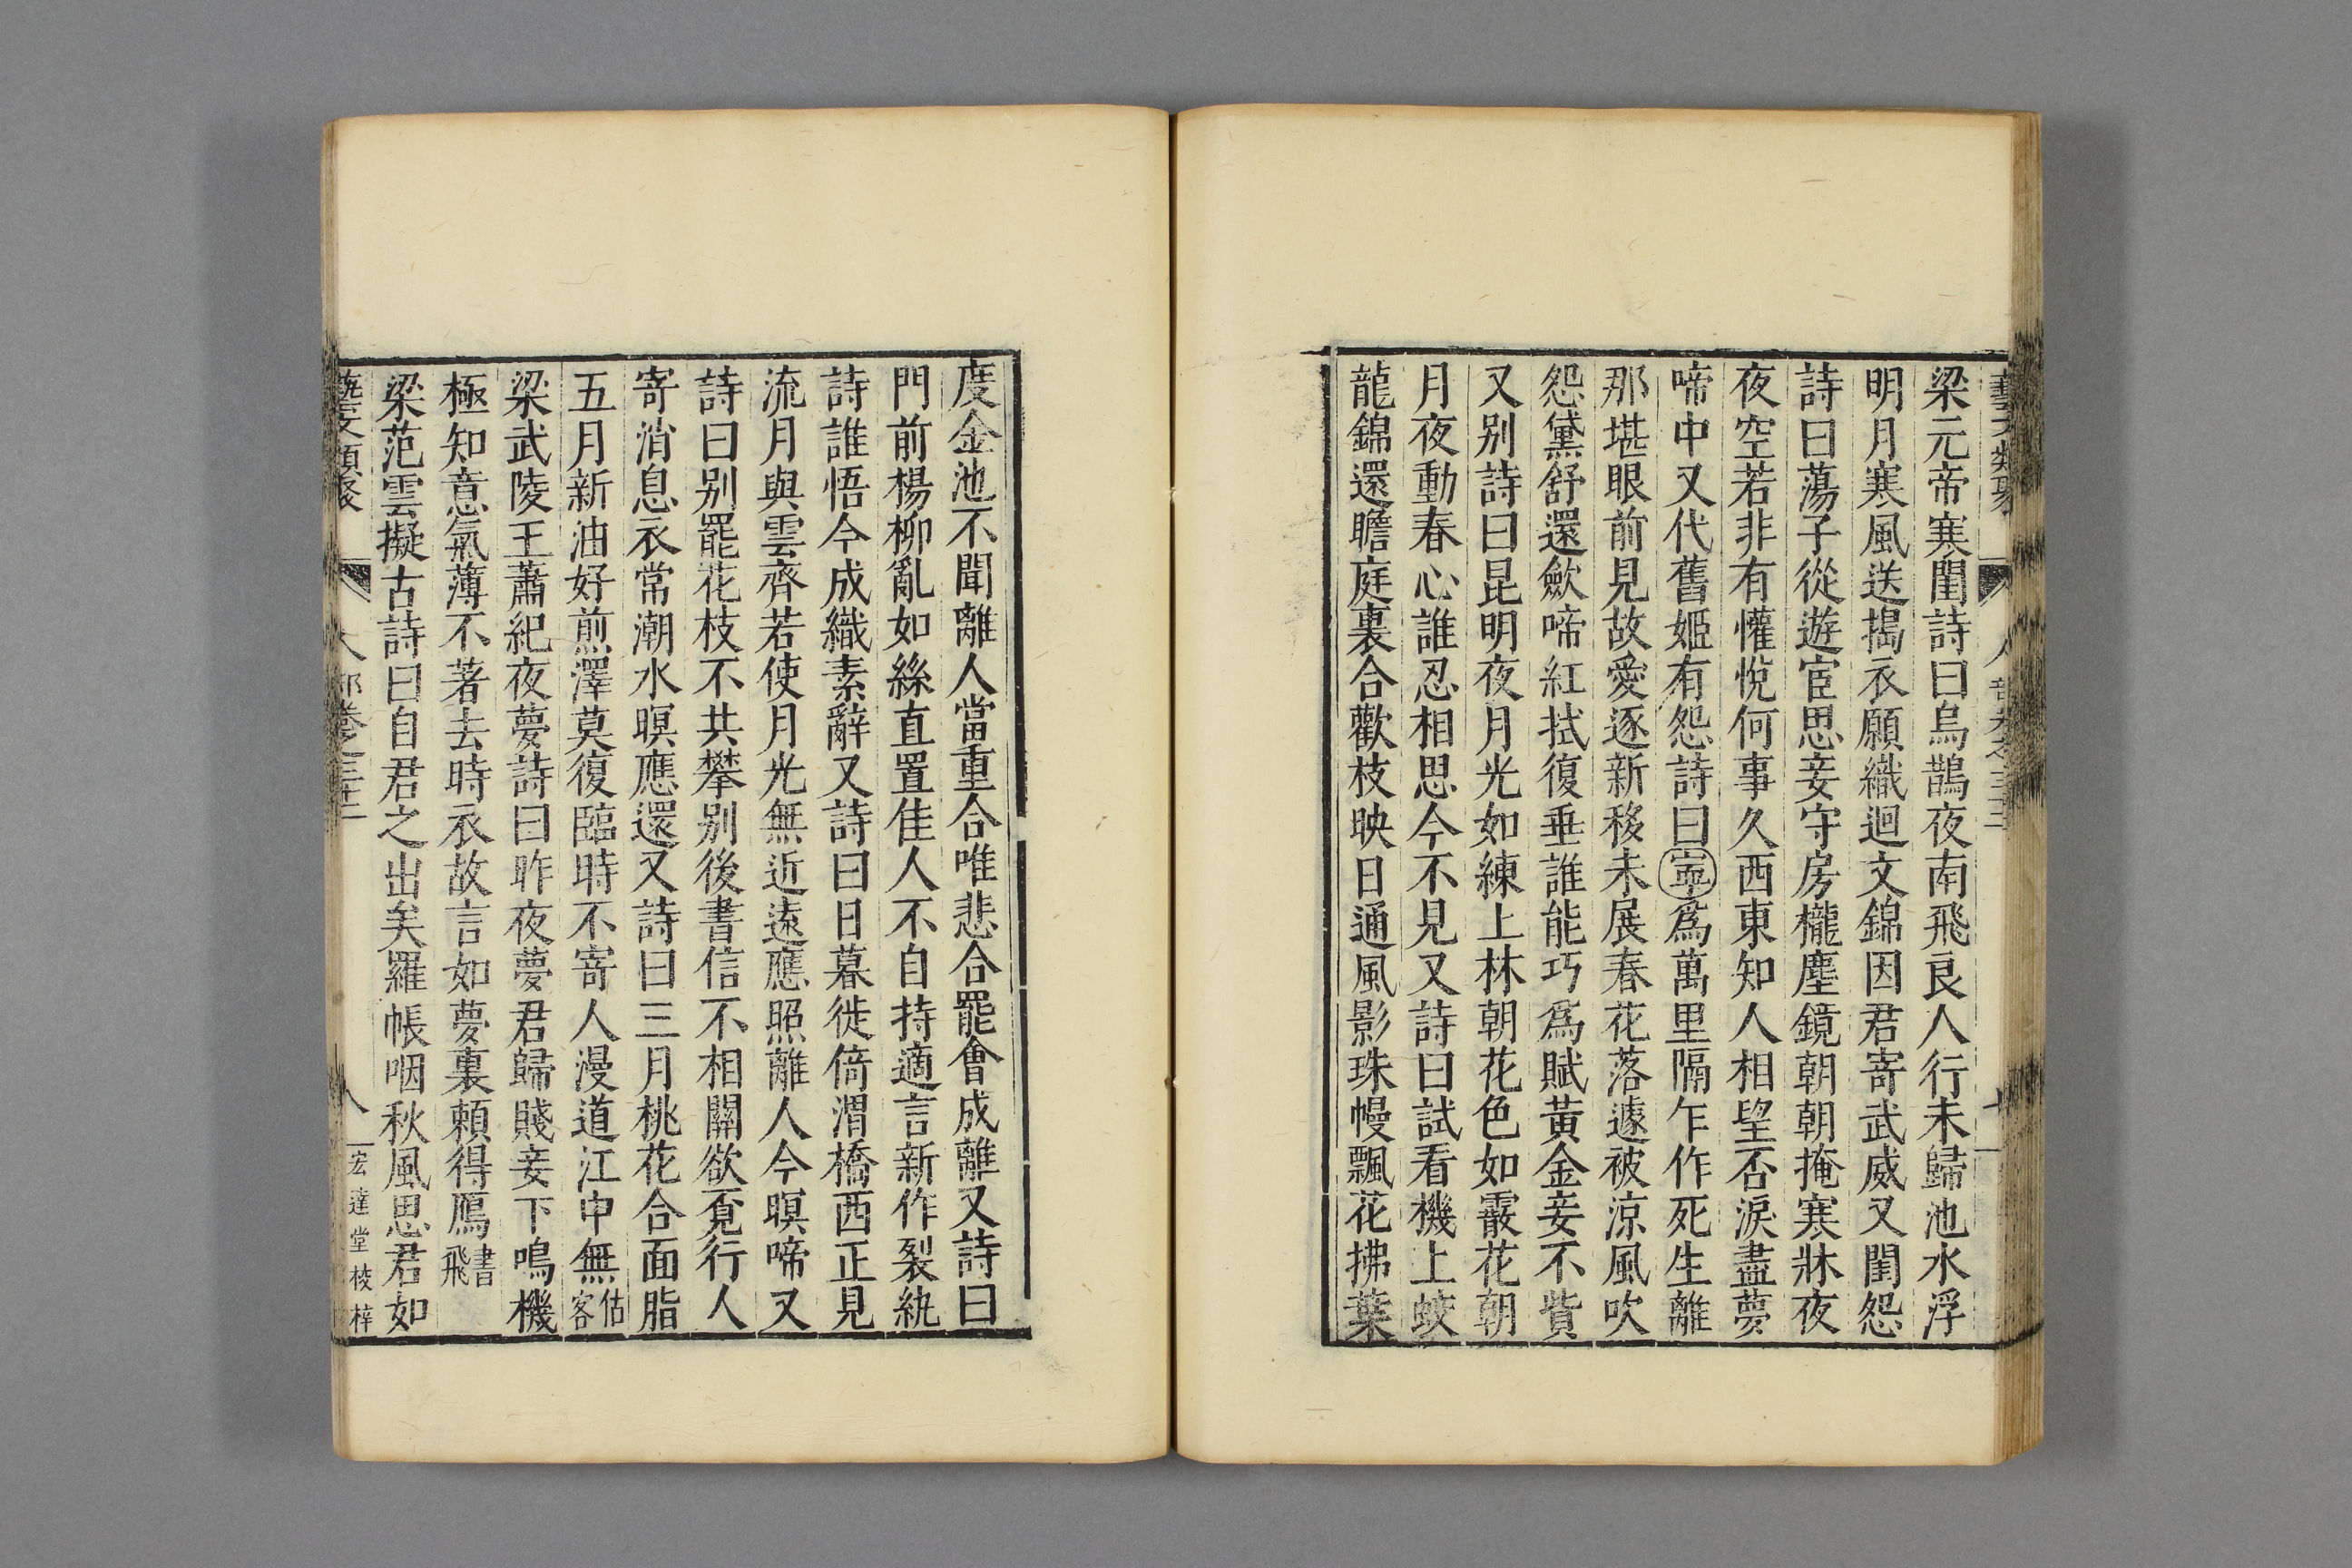 藝文類聚 人部卷之三十二 七
梁元帝寒閨詩曰烏鵲夜南飛良人行未歸池水浮
明月寒風送搗衣願織迴文錦因君寄武威又閨怨
詩曰蕩子從遊宦思妾守房櫳塵鏡朝朝掩寒牀夜
夜空若非有懽悅何事久西東知人相望否淚盡夢
啼中又代舊姬有怨詩曰寧爲萬里隔乍作死生離
那堪眼前見故愛逐新移未展春花落遽被涼風吹
怨黛舒還斂啼紅拭復垂誰能巧爲賦黃金妾不貲
又別詩曰昆明夜月光如練上林朝花色如霰花朝
月夜動春心誰忍相思今不見又詩曰試看機上蛟
龍錦還瞻庭裏合歡枝映日通風影珠幔飄花拂葉
度金池不聞離人當重合唯悲合罷會成離又詩曰
門前楊柳亂如絲直置佳人不自持適言新作裂紈
詩誰悟今成織素辭又詩曰日暮徙倚渭橋西正見
流月與雲齊若使月光無近遠應照離人今暝啼又
詩曰別罷花枝不共攀別後書信不相關欲覔行人
寄消息衣常潮水暝應還又詩曰三月桃花合面脂
五月新油好煎澤莫復臨時不寄人漫道江中無估客
梁武陵王蕭紀夜夢詩曰昨夜夢君歸賤妾下鳴機
極知意氣薄不著去時衣故言如夢裏賴得鴈書飛
梁范雲擬古詩曰自君之出矣羅帳咽秋風思君如
藝文類聚 人部卷之三十二 八 宏達堂校梓